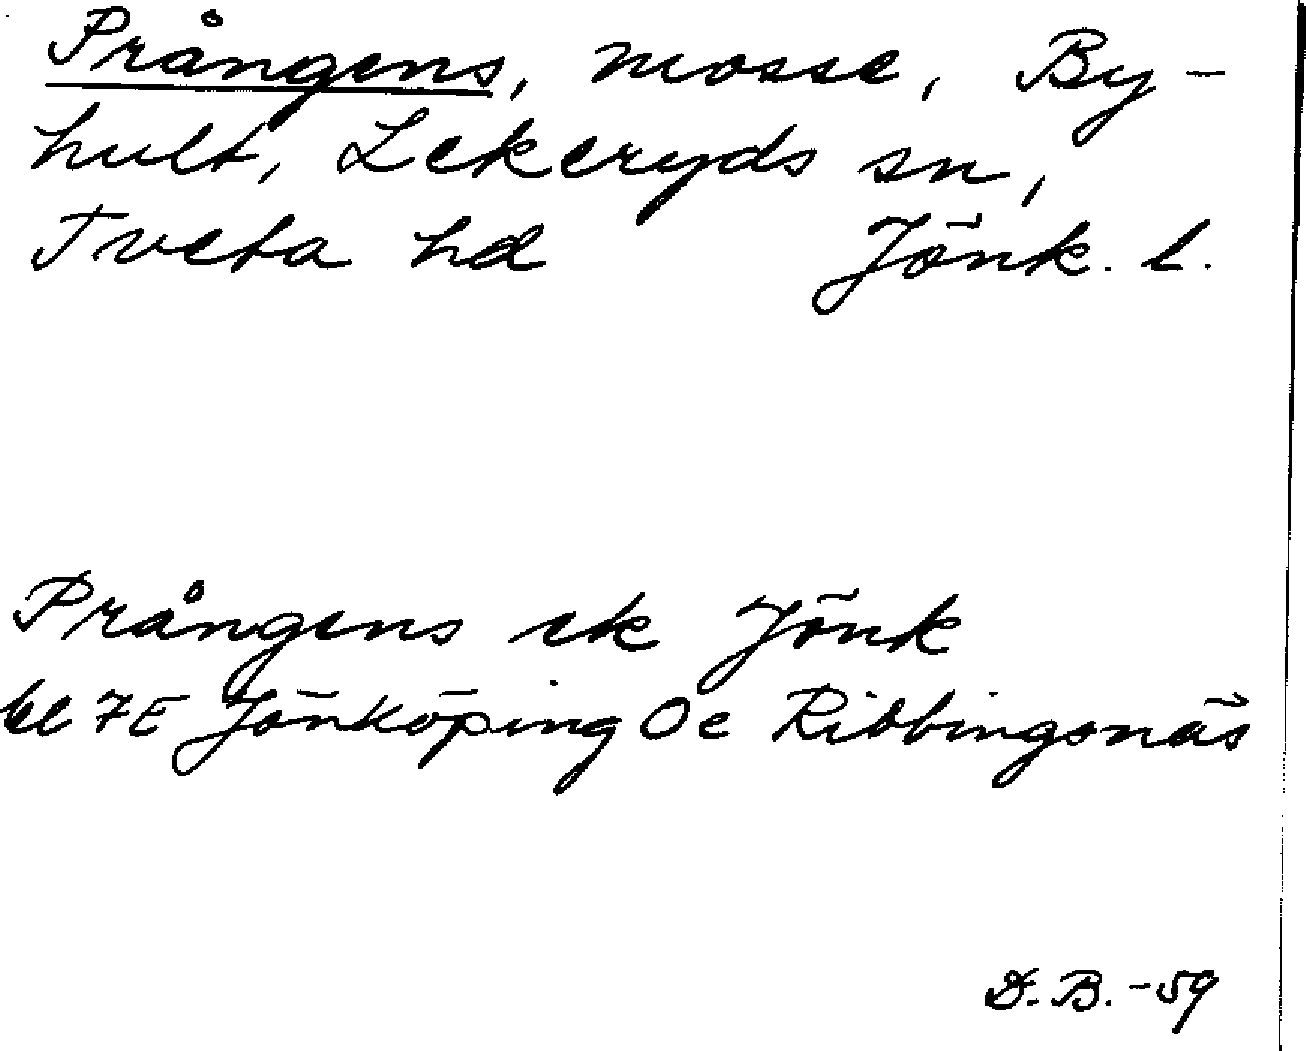 Prångens, mosse, By-
hult, Lekeryds sn,
Tveta hd Jönk. l.
Prångens ek Jönk
bl 7E Jönköping 0e Ribbingsnäs
D.B. -59